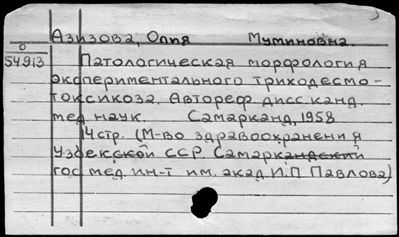 Азизова, Олия Муминовна.
0
54913 Патологическая морфология
экспериментального триходесмо-
токсикоза. Автореф дисс канд.
мед наук. Самарканд, 1958
14 стр. (М-во здравоохранения
Узбекской ССР. Самаркандский
гос мед ин-т им. акад И.П Павлова)